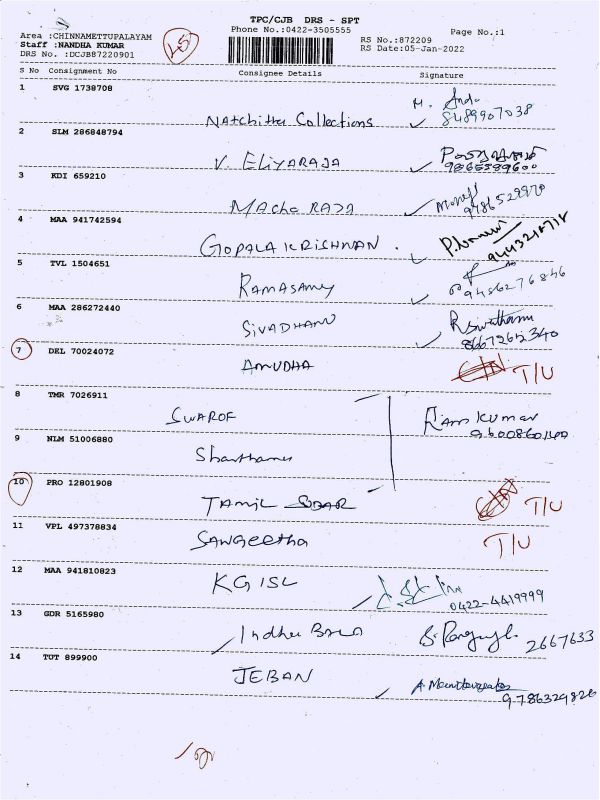 TPC/CJB DRS - SPT
Phone No.:0422-3505555
Page No.:1
Area :CHINNAMETTUPALAYAM
Staff :NANDHA KUMAR
DRS No. :DCJB87220901
RS No.:872209
RS Date:05-Jan-2022
S No Consignment No Consignee Details Signature
1 SVG 1738708
Collections 8489907038
2 SLM 286848794
V. ELIYARAJA
3 KDI 659210
4 MAA 941742594
GOPALAKRISHNAN.
5 TVL 1504651
RAMASAMY 9486276846
6 MAA 286272440
SIVADHANU
7 DEL 70024072
AMUDHA T/U
8 TMR 7026911
SWAROF Ram Kumar
9 NLM 51006880
10 PRO 12801908
TAMIL T/U
11 VPL 497378834
SANGEETHA T/U
12 MAA 941810823
KG ISL
0422-4419999
13 GDR 5165980
Indhu Bala 2667633
14 TUT 899900
JEBAN
9786329826